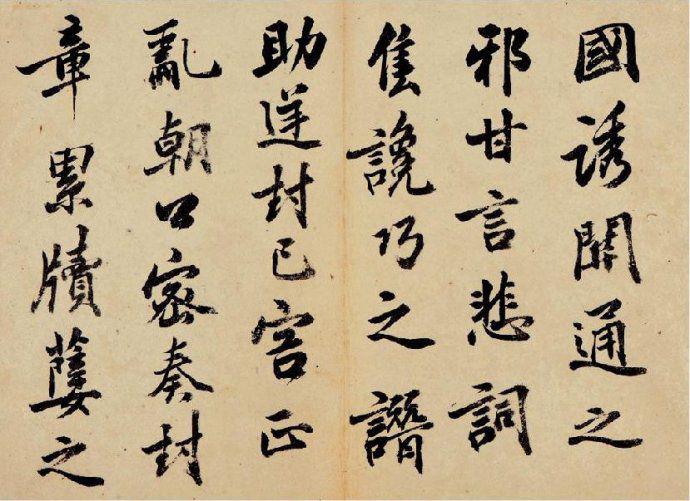 國誘關通之
邪甘言悲詞
售讒巧之譖
助逆封己害正
亂朝口密奏封
章累牘之